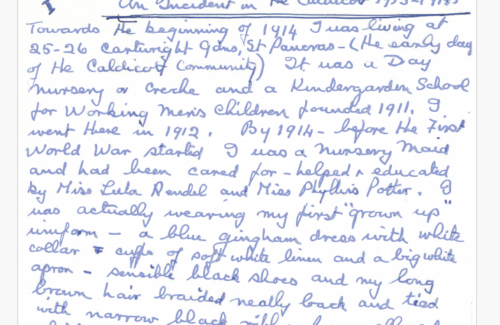 An Incident in The Caldicott
Towards the beginning of 1914 I was living at
25-26 Cartwright Gdns, St Pancras - (The early day
of The Caldicott Community) It was a Day
Nursery or Creche and a Kindergarden School
for Working Men's Children founded 1911. I
went there in 1912. By 1914 - before the First
World War started I was a Nursery Maid
and had been cared for - helped & educated
by Miss Lula Rendel and Miss Phyllis Potter. I
was actually wearing my first "grown up"
uniform - a blue gingham dress with white
collar & cuffs of soft white linen and a big white
apron - "sensible" black shoes and my long
brown hair braided neatly back and tied
with narrow black